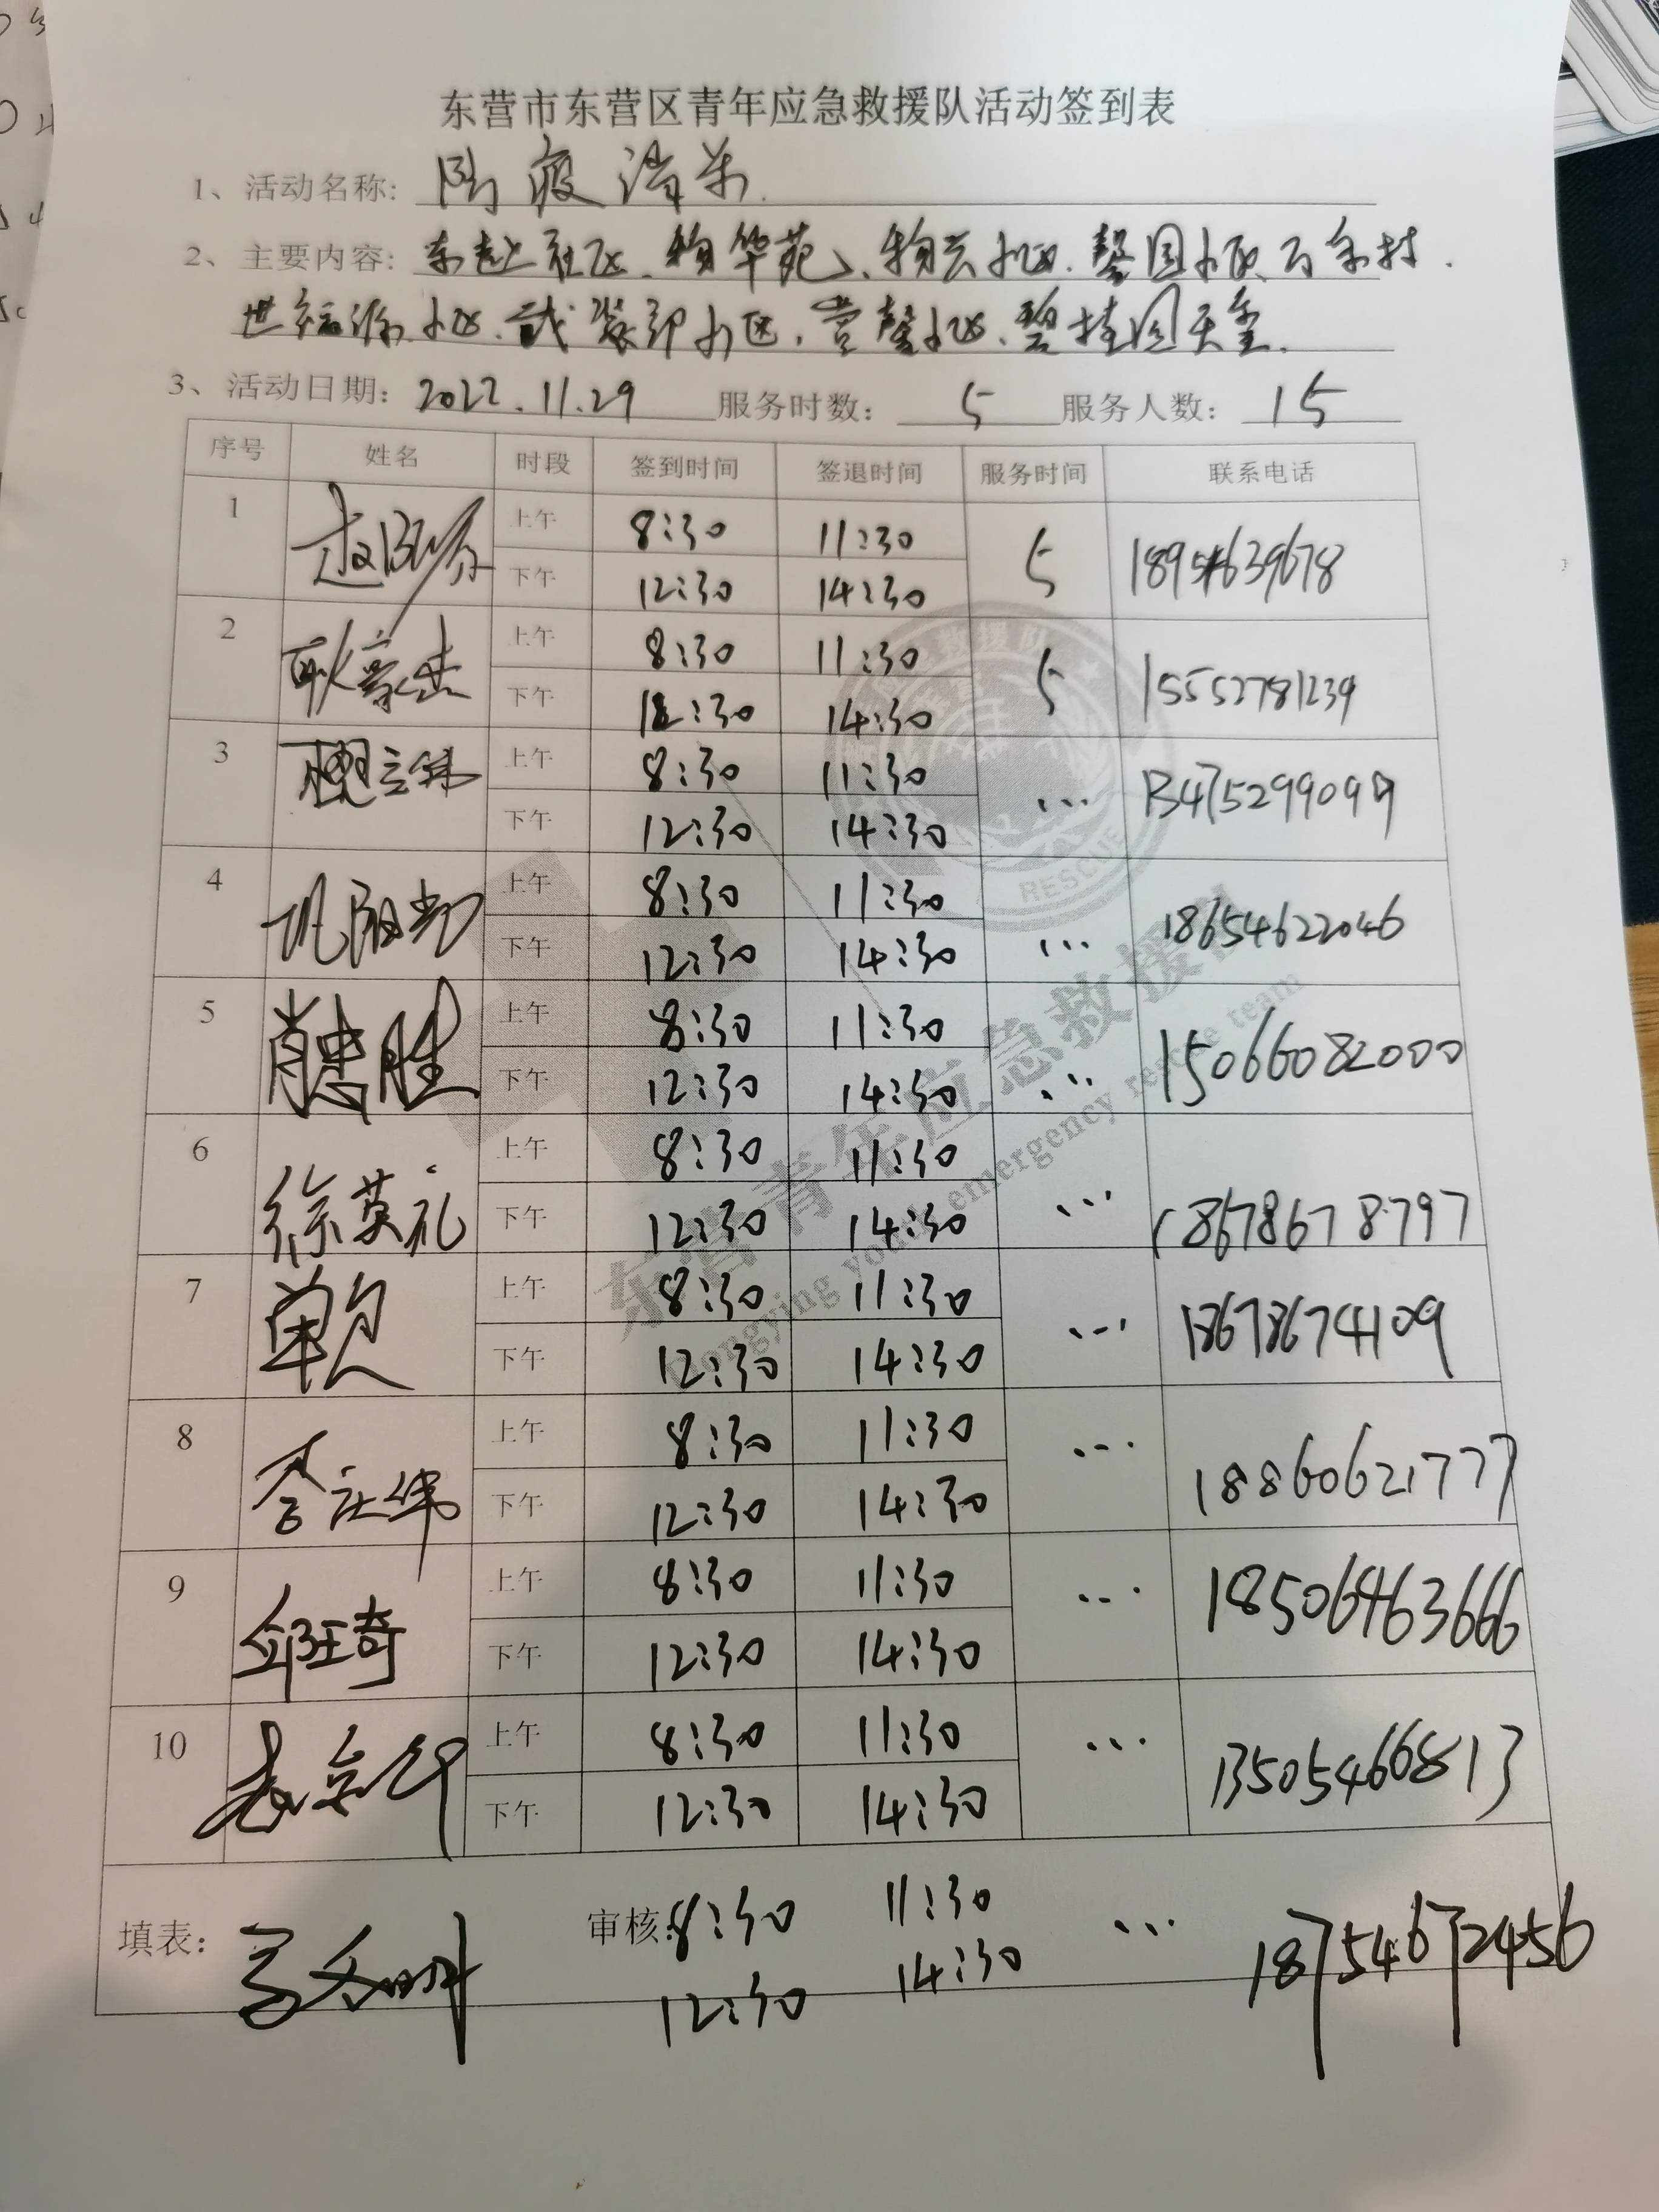 东营市东营区青年应急救援队活动签到表
1、活动名称: 防疫消杀
2、主要内容: 东赵社区、物华苑、物兴小区、馨园小区
世福源小区、武装部小区、营馨小区、碧桂园天玺.
3、活动日期: 2022.11.29 服务时数: 5 服务人数: 15
序号 姓名 时段 签到时间 签退时间 服务时间 联系电话
1 上午 8:30 11:30 5 18954639678
下午 12:30 14:30
2 耿豪杰 上午 8:30 11:30 5 15552781239
下午 12:30 14:30
3 上午 8:30 11:30 ... 13475299099
下午 12:30 14:30
4 巩阳光 上午 8:30 11:30 ... 18654622046
下午 12:30 14:30
5 肖忠胜 上午 8:30 11:30 ... 15066082000
下午 12:30 14:30
6 徐英礼 上午 8:30 11:30 ... 18678678797
下午 12:30 14:30
7 上午 8:30 11:30 ... 18678674109
下午 12:30 14:30
8 李庆伟 上午 8:30 11:30 ... 18860621777
下午 12:30 14:30
9 邱珏奇 上午 8:30 11:30 ... 18506463666
下午 12:30 14:30
10 上午 8:30 11:30 ... 13505466813
下午 12:30 14:30
填表: 审核: 8:30 11:30 ... 18754672456
12:30 14:30
RESCUE
东营青年应急救援队
Dongying youth emergency rescue team